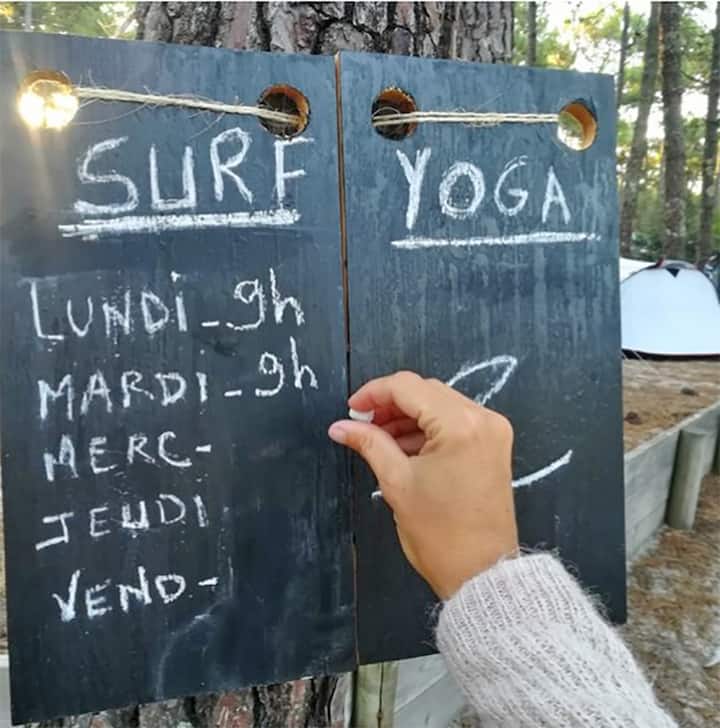 SURF
LUNDi - 9h
MARDI - 9h
MERC -
JEUDI
VEND -
YOGA